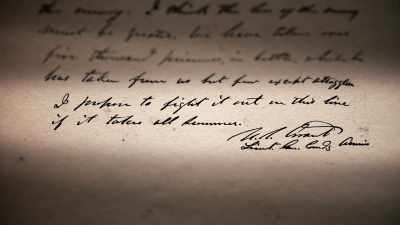 the enemy. I think the loss of the enemy
must be greater. We have taken over
five thousand prisoners, in battle, whilst he
has taken from us but few except stragglers.
I propose to fight it out on this line
if it takes all summer.
U. S. Grant
Lieut. Gen. Comdg Armies